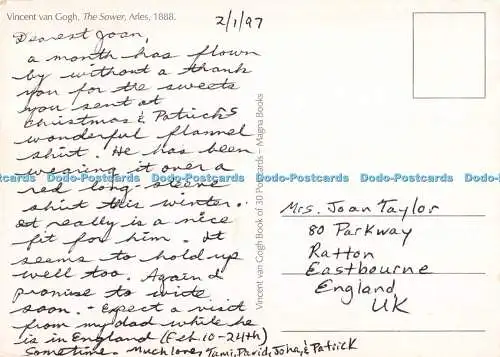 Vincent van Gogh, The Sower, Arles, 1888.
2/1/97
Dearest Joan,
a month has flown
by without a thank
you for the sweets
you sent at
Christmas & Patrick's
wonderful flannel
shirt. He has been
wearing it over a
red long-sleeve
shirt this winter.
It really is a nice
fit for him. It
seems to hold up
well too. Again I
promise to write
soon. - Expect a visit
from my dad while he
is in England (Feb 10-24th)
Sometime. Much love, Tami, David, John, & Patrick
Vincent van Gogh Book of 30 Postcards – Magna Books
Mrs. Joan Taylor
80 Parkway
Ratton
Eastbourne
England
UK
Dodo-Postcards Dodo-Postcards Dodo-Postcards Dodo-Postcards Dodo-Postcards Dodo-Postcards